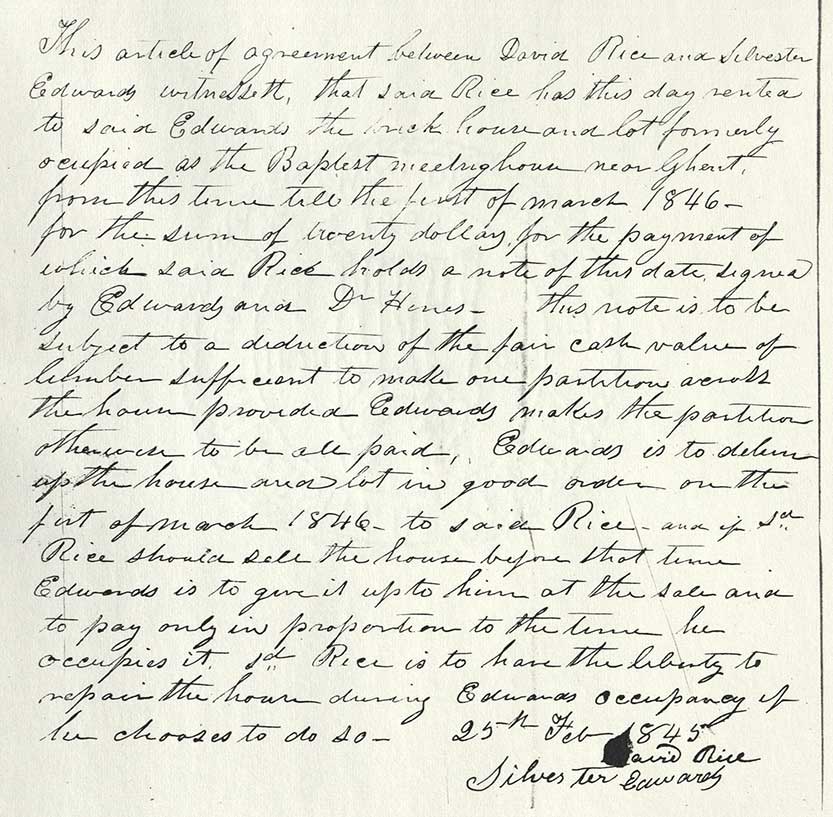 This article of agreement between David Rice and Silvester
Edwards witnesseth, that said Rice has this day rented
to said Edwards the brick house and lot formerly
ocupied as the Baptest meetinghouse near Ghent,
from this time till the first of march 1846 –
for the sum of twenty dollars, for the payment of
which said Rice holds a note of this date, signed
by Edwards and Dr Hines – this note is to be
subject to a deduction of the fair cash value of
lumber sufficient to make one partition across
the house provided Edwards makes the partition
otherwise to be all paid, Edwards is to deliver
up the house and lot in good order on the
first of march 1846 – to said Rice – and if sd
Rice should sell the house before that time
Edwards is to give it up to him at the sale and
to pay only in proportion to the time he
occupies it. sd Rice is to have the liberty to
repair the house during Edwards occupancy if
he chooses to do so – 25th Feb 1845
David Rice
Silvester Edwards